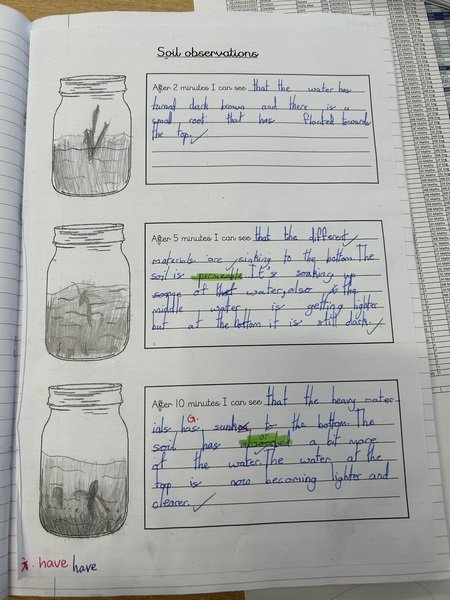 Soil observations
After 2 minutes I can see that the water has
turned dark brown and there is a
small root that has floated towards
the top.
After 5 minutes I can see that the different
materials are sinking to the bottom. The
soil is permeable It's soaking up
of water, also the
middle water is getting lighter
but at the bottom it is still dark.
After 10 minutes I can see that the heavy mater-
ials has G. sunk to the bottom. The
soil has a bit more
of the water. The water at the
top is now becoming lighter and
clearer.
have have